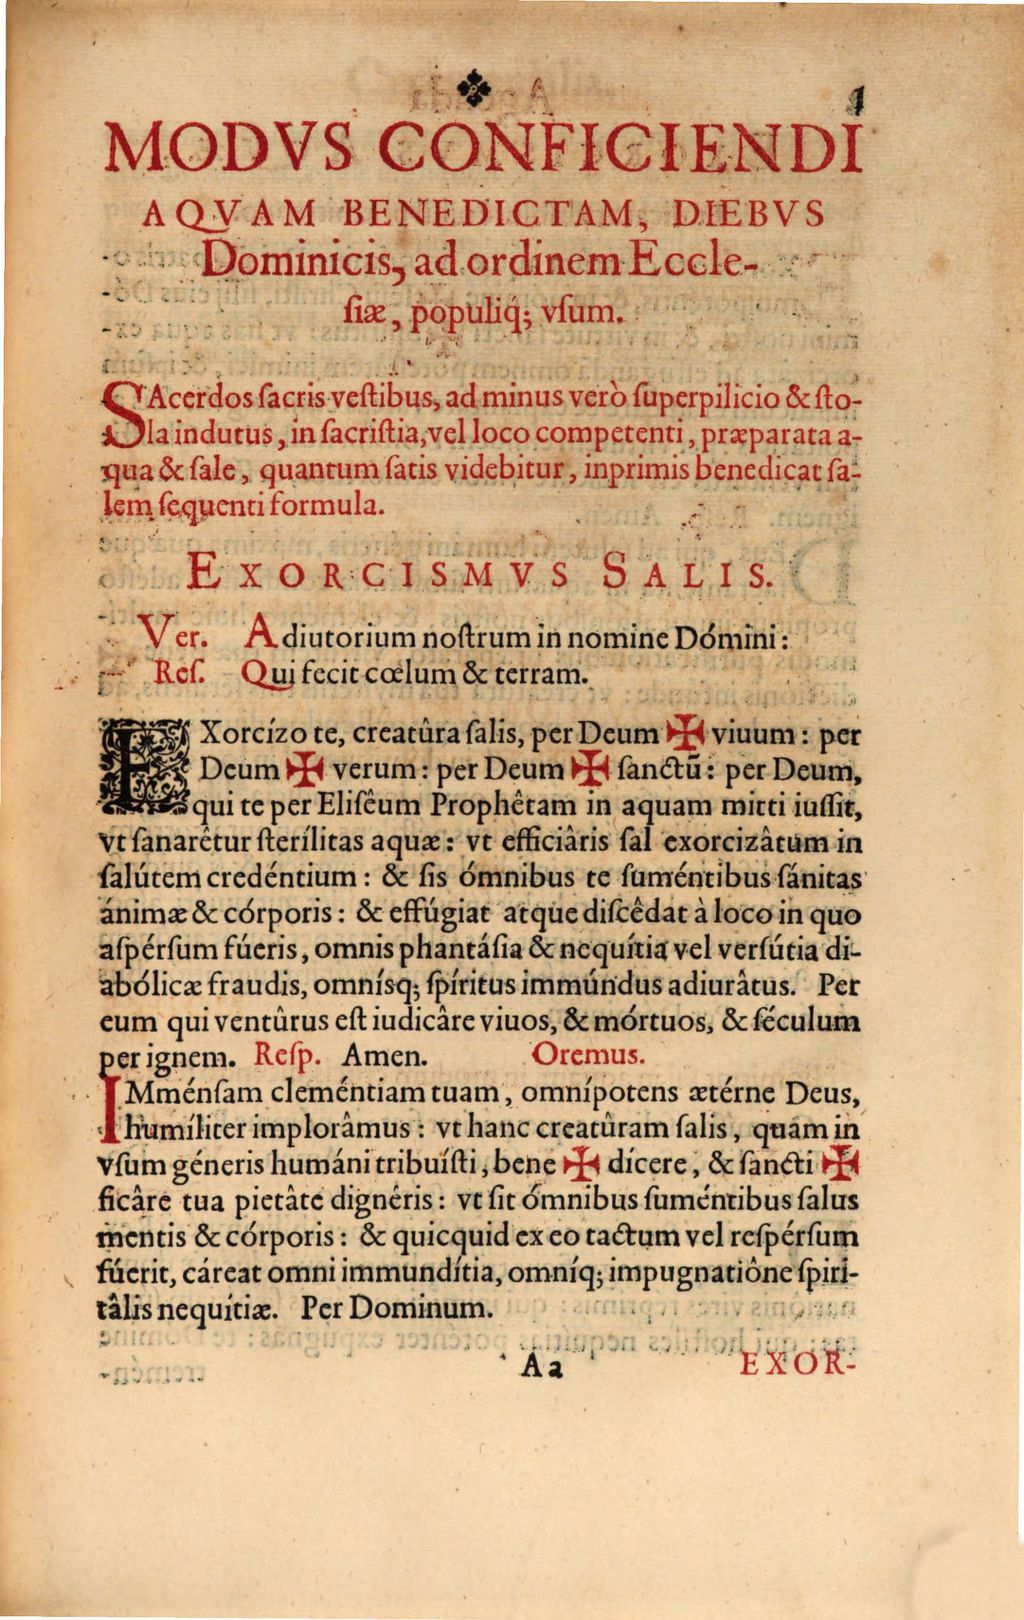 1
MODVS CONFICIENDI
AQVAM BENEDICTAM, DIEBVS
Dominicis, ad ordinem Eccle-
ſiæ, populiq́; vſum.
SAcerdos ſacris veſtibus, ad minus verò ſuperpilicio & ſto-
la indutus, in ſacriſtia, vel loco competenti, præparata a-
qua & ſale, quantum ſatis videbitur, inprimis benedicat ſa-
lem ſequenti formula.
EXORCISMVS SALIS.
Ver. Adiutorium noſtrum in nomine Dómini:
Reſ. Qui fecit cœlum & terram.
EXorcízo te, creatûra ſalis, per Deum ✠ viuum: per
Deum ✠ verum: per Deum ✠ ſanctū: per Deum,
qui te per Eliſêum Prophêtam in aquam mitti iuſſit,
vt ſanarêtur ſterílitas aquæ: vt efficiâris ſal exorcizâtum in
ſalútem credéntium: & ſis ómnibus te ſuméntibus ſánitas
ánimæ & córporis: & effúgiat atque diſcêdat à loco in quo
aſpérſum fúeris, omnis phantáſia & nequítia vel verſútia di-
abólicæ fraudis, omníſq; ſpíritus immúndus adiurâtus. Per
eum qui ventûrus eſt iudicâre viuos, & mórtuos, & ſéculum
per ignem. Reſp. Amen. Oremus.
IMménſam cleméntiam tuam, omnípotens ætérne Deus,
humíliter implorâmus: vt hanc creatûram ſalis, quam in
vſum géneris humáni tribuíſti, bene ✠ dícere, & ſancti ✠
ficâre tua pietâte dignêris: vt ſit ómnibus ſuméntibus ſalus
mentis & córporis: & quicquid ex eo tactum vel reſpérſum
fúerit, cáreat omni immundítia, omníq; impugnatiône ſpiri-
tâlis nequítiæ. Per Dominum.
Aa EXOR-